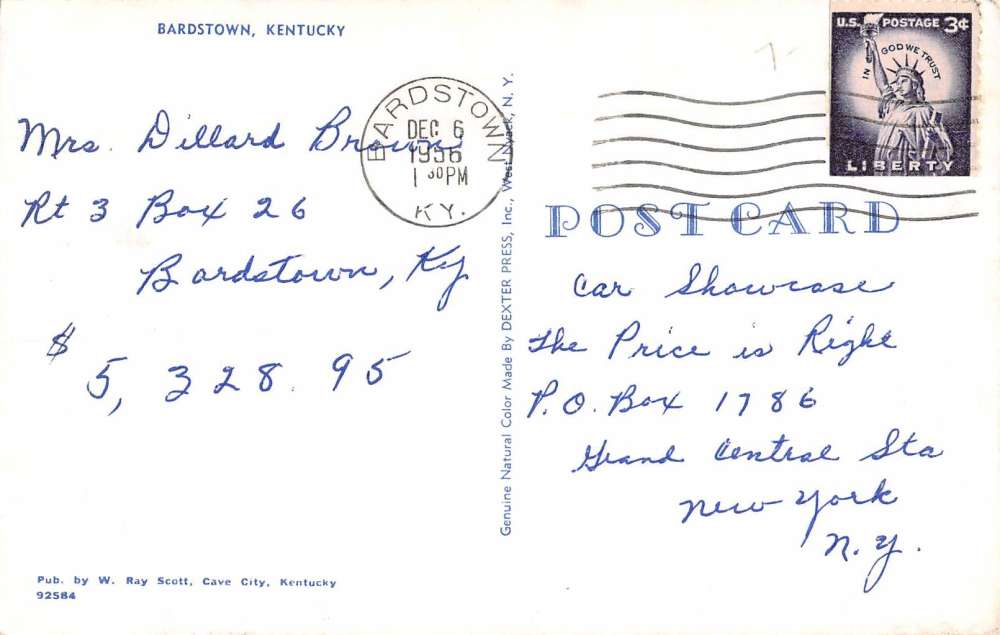 BARDSTOWN, KENTUCKY
Mrs. Dillard Brown
Rt 3 Box 26
Bardstown, Ky
$ 5, 328.95
Pub. by W. Ray Scott, Cave City, Kentucky
92584
Genuine Natural Color Made By DEXTER PRESS, Inc., West Nyack, N. Y.
BARDSTOWN
DEC 6
1956
1 30 PM
KY.
U.S. POSTAGE 3¢
IN GOD WE TRUST
LIBERTY
POST CARD
Car Showcase
The Price is Right
P.O. Box 1786
Grand Central Sta
New York
N.Y.